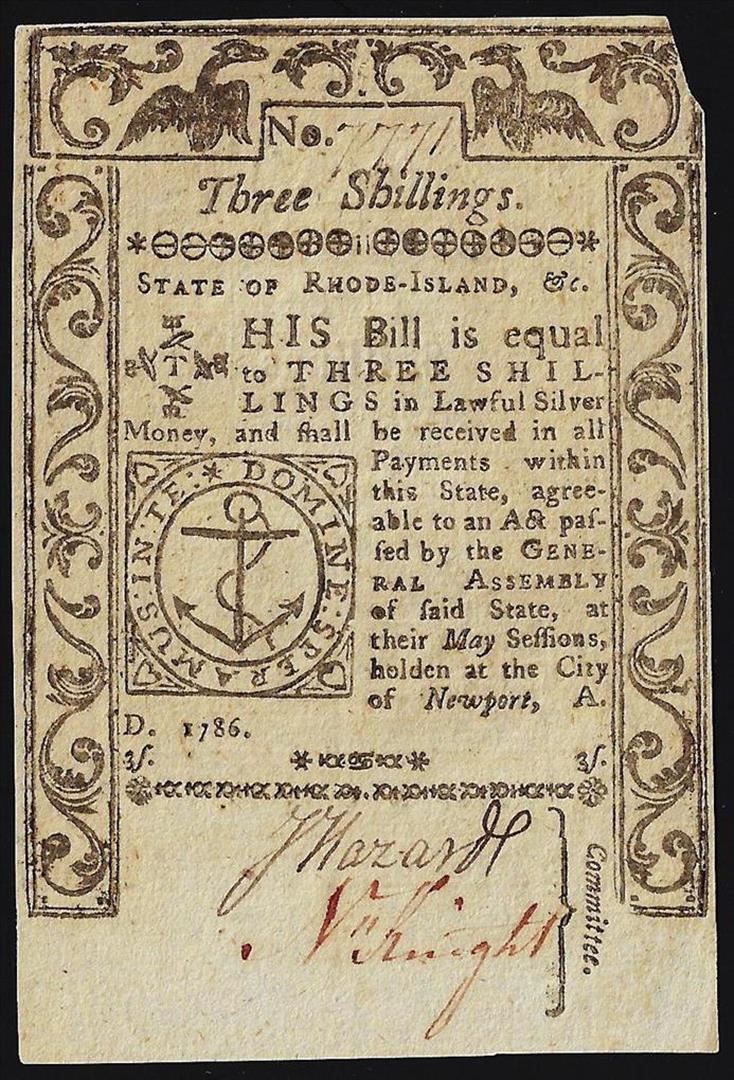 No. 7771
Three Shillings.
STATE OF RHODE-ISLAND, &c.
THIS Bill is equal
to THREE SHIL-
LINGS in Lawful Silver
Money, and ſhall be received in all
Payments within
this State, agree-
able to an Act paſ-
ſed by the GENE-
RAL ASSEMBLY
of ſaid State, at
their May Seſſions,
holden at the City
of Newport, A.
D. 1786.
IN TE: * DOMINE: SPERAMUS:
3ſ. 3ſ.
J Hazard
N Knight
Committee.